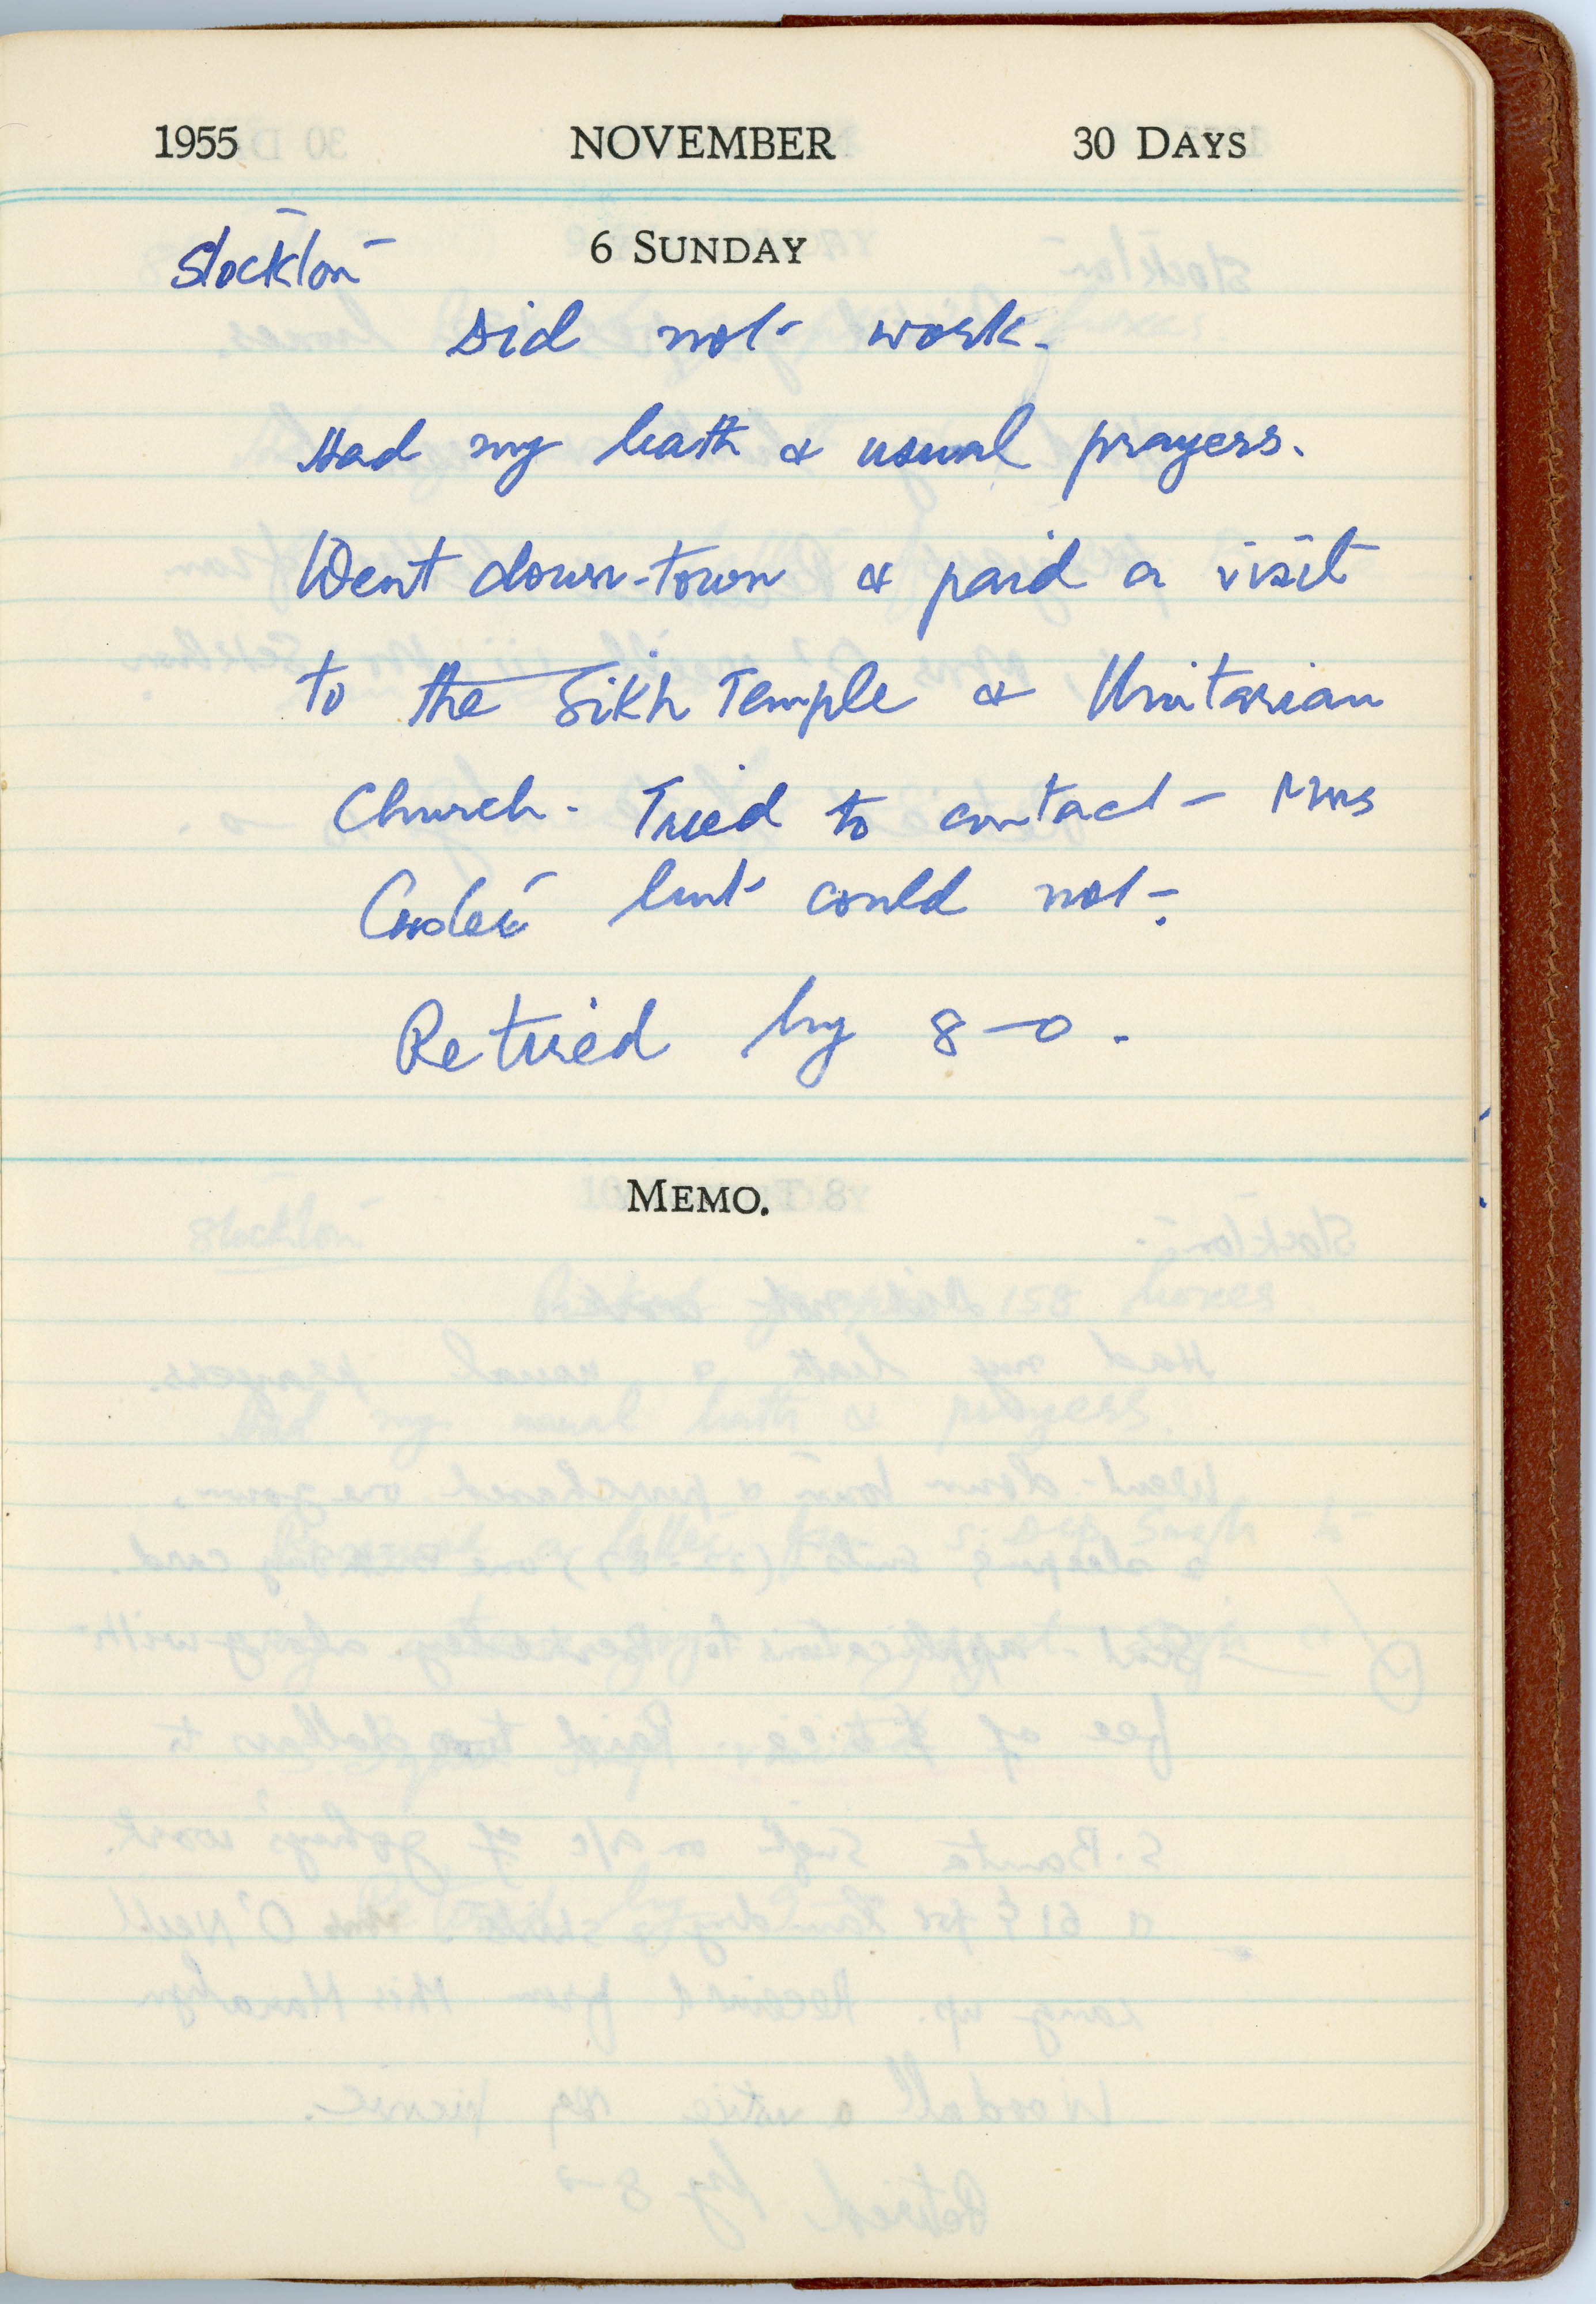 1955 NOVEMBER 30 DAYS
6 SUNDAY
Stockton
Did not work.
Had my bath & usual prayers.
Went down-town & paid a visit
to the Sikh Temple & Unitarian
Church. Tried to contact Mrs
but could not.
Retired by 8-0.
MEMO.